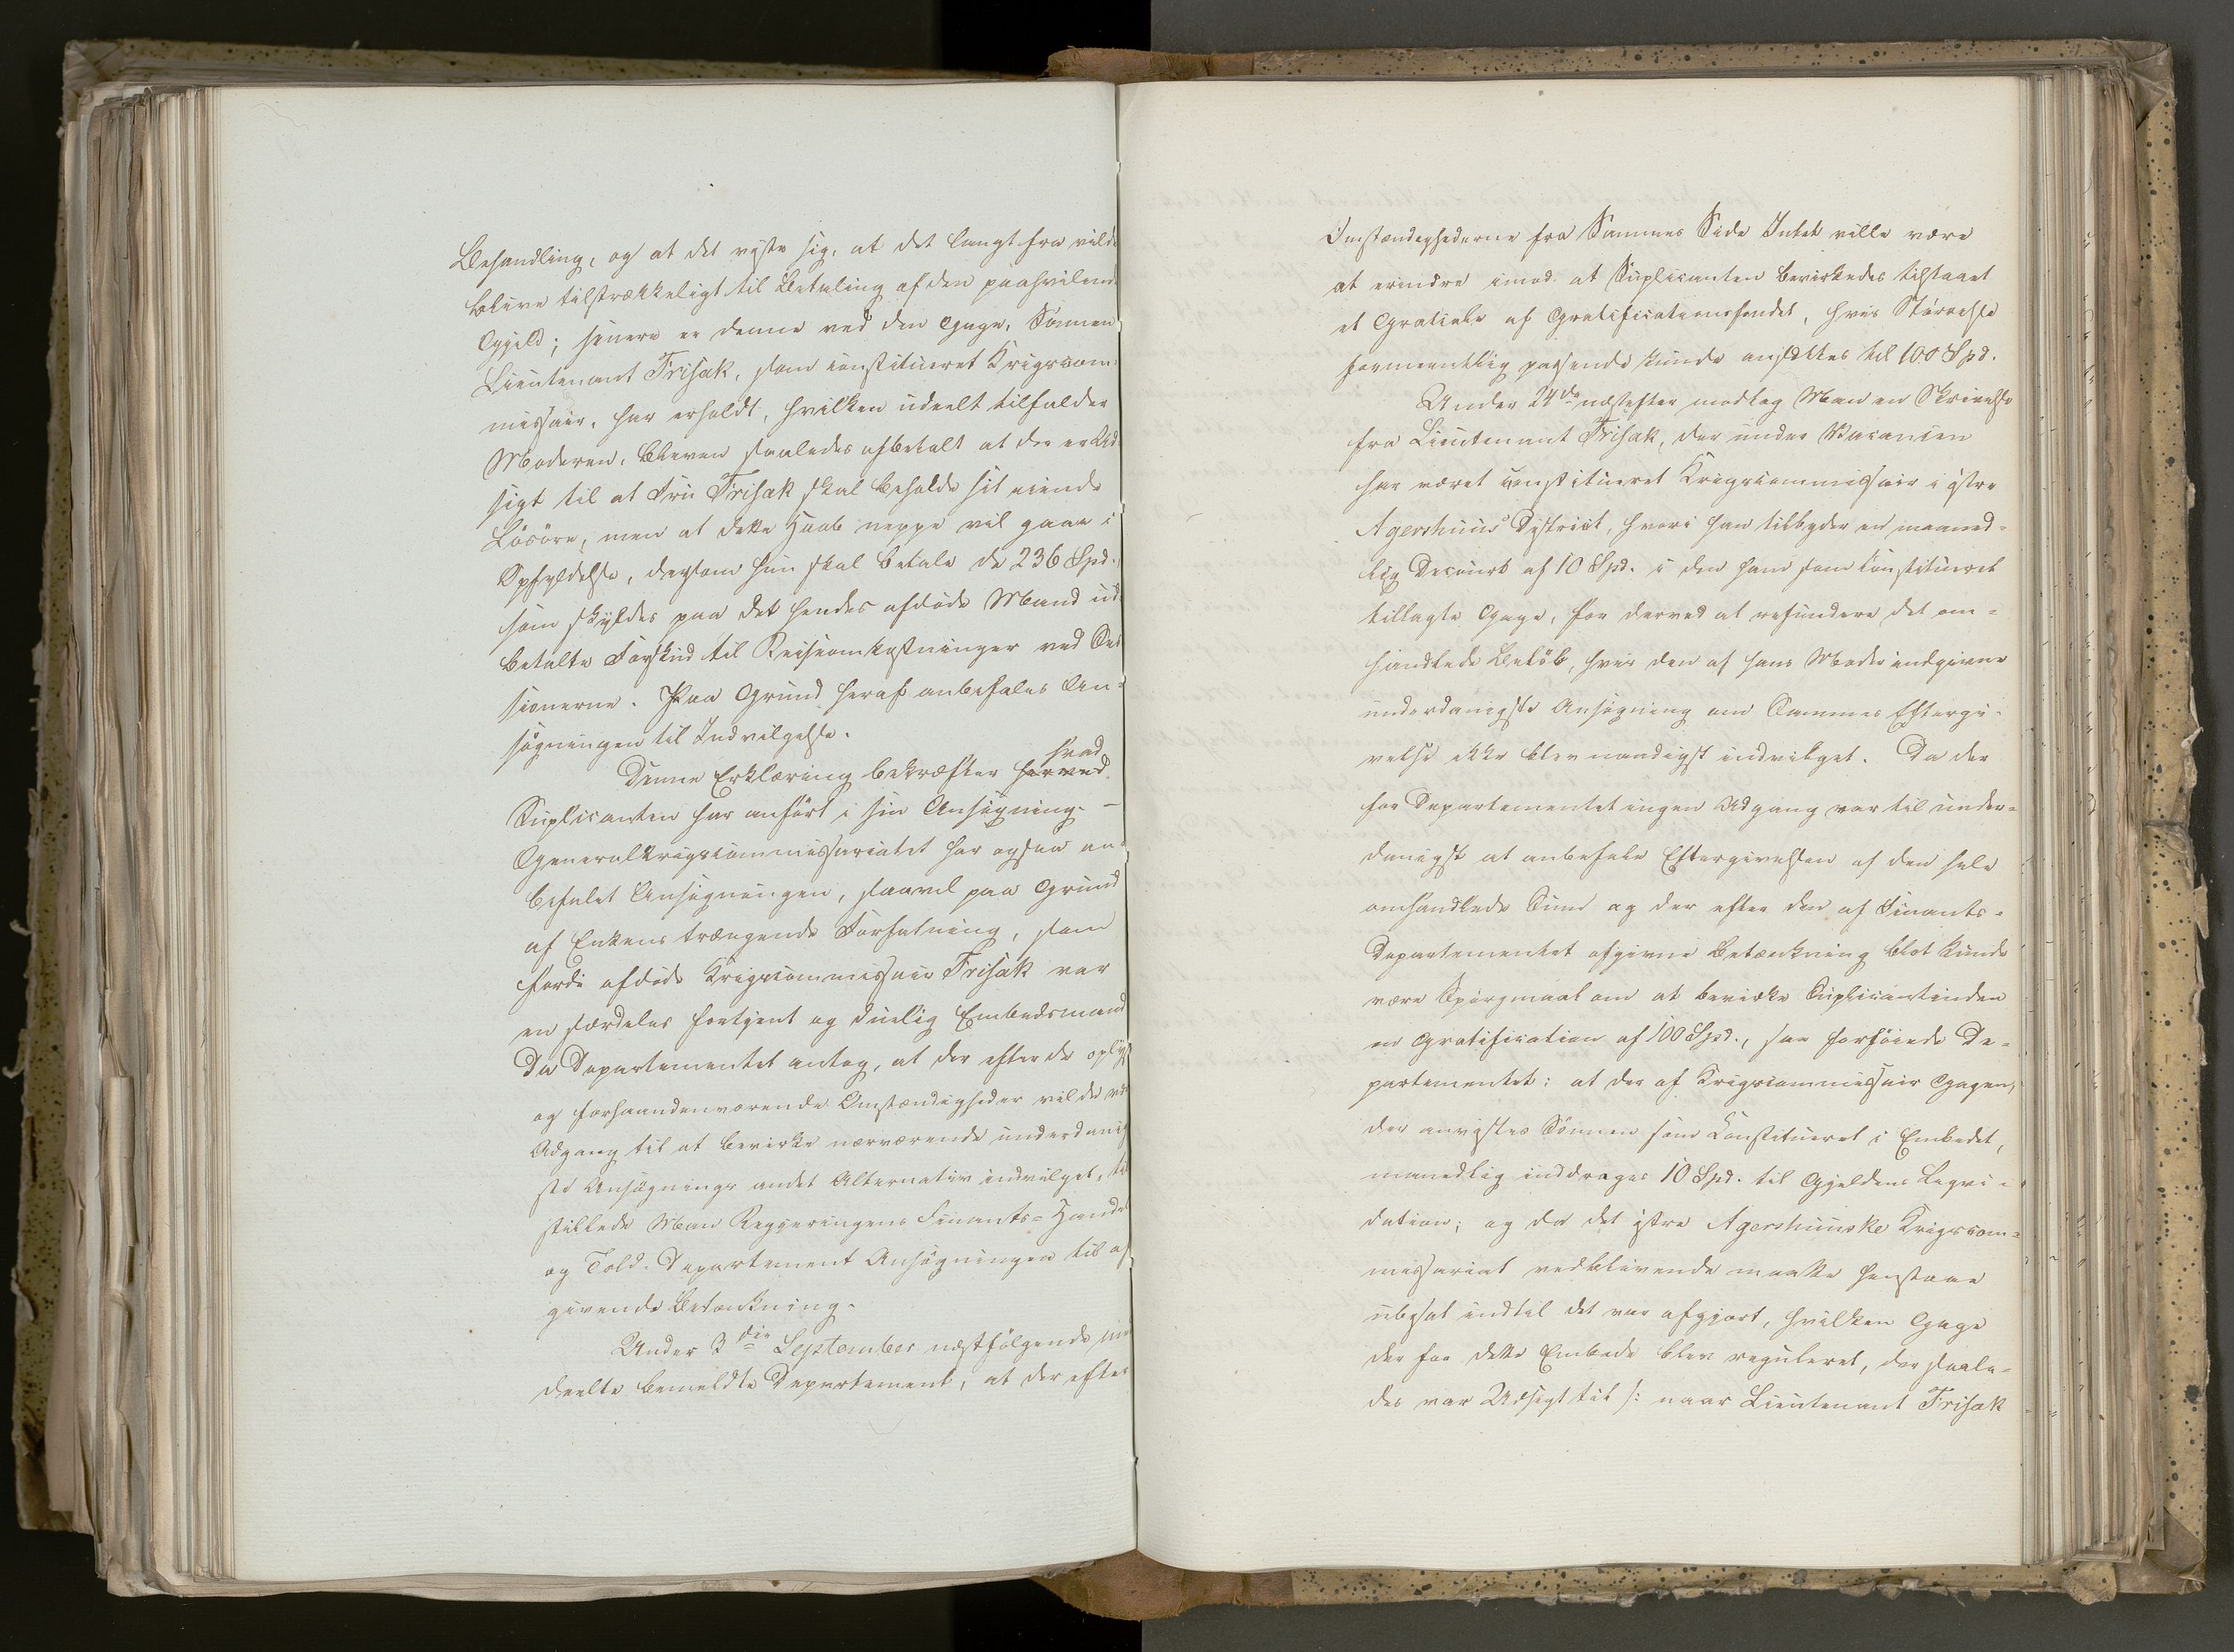 Behandling, og at det viste sig, at det langt fra vilde
blive tilstrækkeligt til Betaling af den paahvilende
Gjæld; senere er denne ved den Gage, Sønnen
Lieutenant Frisak, som constitueret Krigscom¬
missair, har erholdt, hvilken udeelt tilfalder
Moderen, bleven saaledes afbetalt at der er Ud¬
sigt til at Fru Frisak skal beholde sit eiende
Løsøre, men at dette Haab neppe vil gaae i
Opfyldelse, dersom hun skal betale de 236 Spd.,
som skyldes paa det hendes afdøde Mand ud¬
betalte Forskud til Reiseomkostninger ved Ses¬
sionerne. Paa Grund heraf anbefales An¬
søgningen til Indvilgelse.
hvad
Denne Erklæring bekræfter herved
Suplicanten har anført i sin Ansøgning. —
Generalkrigscommissariatet har ogsaa an¬
befalet Ansøgningen, saavel paa Grund
af Enkens trængende Forfatning, som
fordi afdøde Krigscommissair Frisak var
en særdeles fortjent og duelig Embedsmand
Da Departementet antog, at der efter de oplyst
og forhaandenværende Omstændigheder vilde være
Adgang til at bevirke nærværende underdanig
ste Ansøgnings andet Alternativ indvilget, til
stillede Man Regjeringens Finants- Handels
og Told-Departement Ansøgningen til af
givende Betænkning.
Under 3die September næstfølgende med
deelte bemeldte Departement, at der efter
Omstændighederne fra Sammes Side Intet ville være
at erindre imod at Suplicanten bevirkedes tilstaaet
et Gratiale af Gratificationsfondet, hvis Størrelse
formeentlig passende kunde ansættes til 100 Spd.
Under 24de næstefter modtog Man en Skrivelse
fra Lieutenant Frisak, der under Vacancen
har været constitueret Krigscommissair i østre
Agershuus District, hvori han tilbyder en maaned¬
lig Decourt af 10 Spd. i den ham som Constitueret
tillagte Gage, for derved at refundere det om¬
handlede Beløb, hvis den af hans Moder indgivne
underdanigste Ansøgning om Sammes Eftergi¬
velse ikke blev naadigst indvilget. Da der
for Departementet ingen Adgang var til under¬
danigst at anbefale Eftergivelsen af den hele
omhandlede Sum og der efter den af Finants¬
Departementet afgivne Betænkning blot kunde
være Spørgmaal om at bevirke Suplicantinden
en Gratification af 100 Spd., saa forføiede De¬
partementet: at der af Krigscommissair Gagen,
der anvistes Sønnen som Constitueret i Embedet,
maanedlig inddrages 10 Spd. til Gjeldens Liqvi¬
dation; og da det østre Agershuuske Krigscom¬
missariat vedblivende maatte henstaae
ubesat indtil det var afgjort, hvilken Gage
der for dette Embede blev reguleret, der saale¬
des var Udsigt til /: naar Lieutenant Frisak